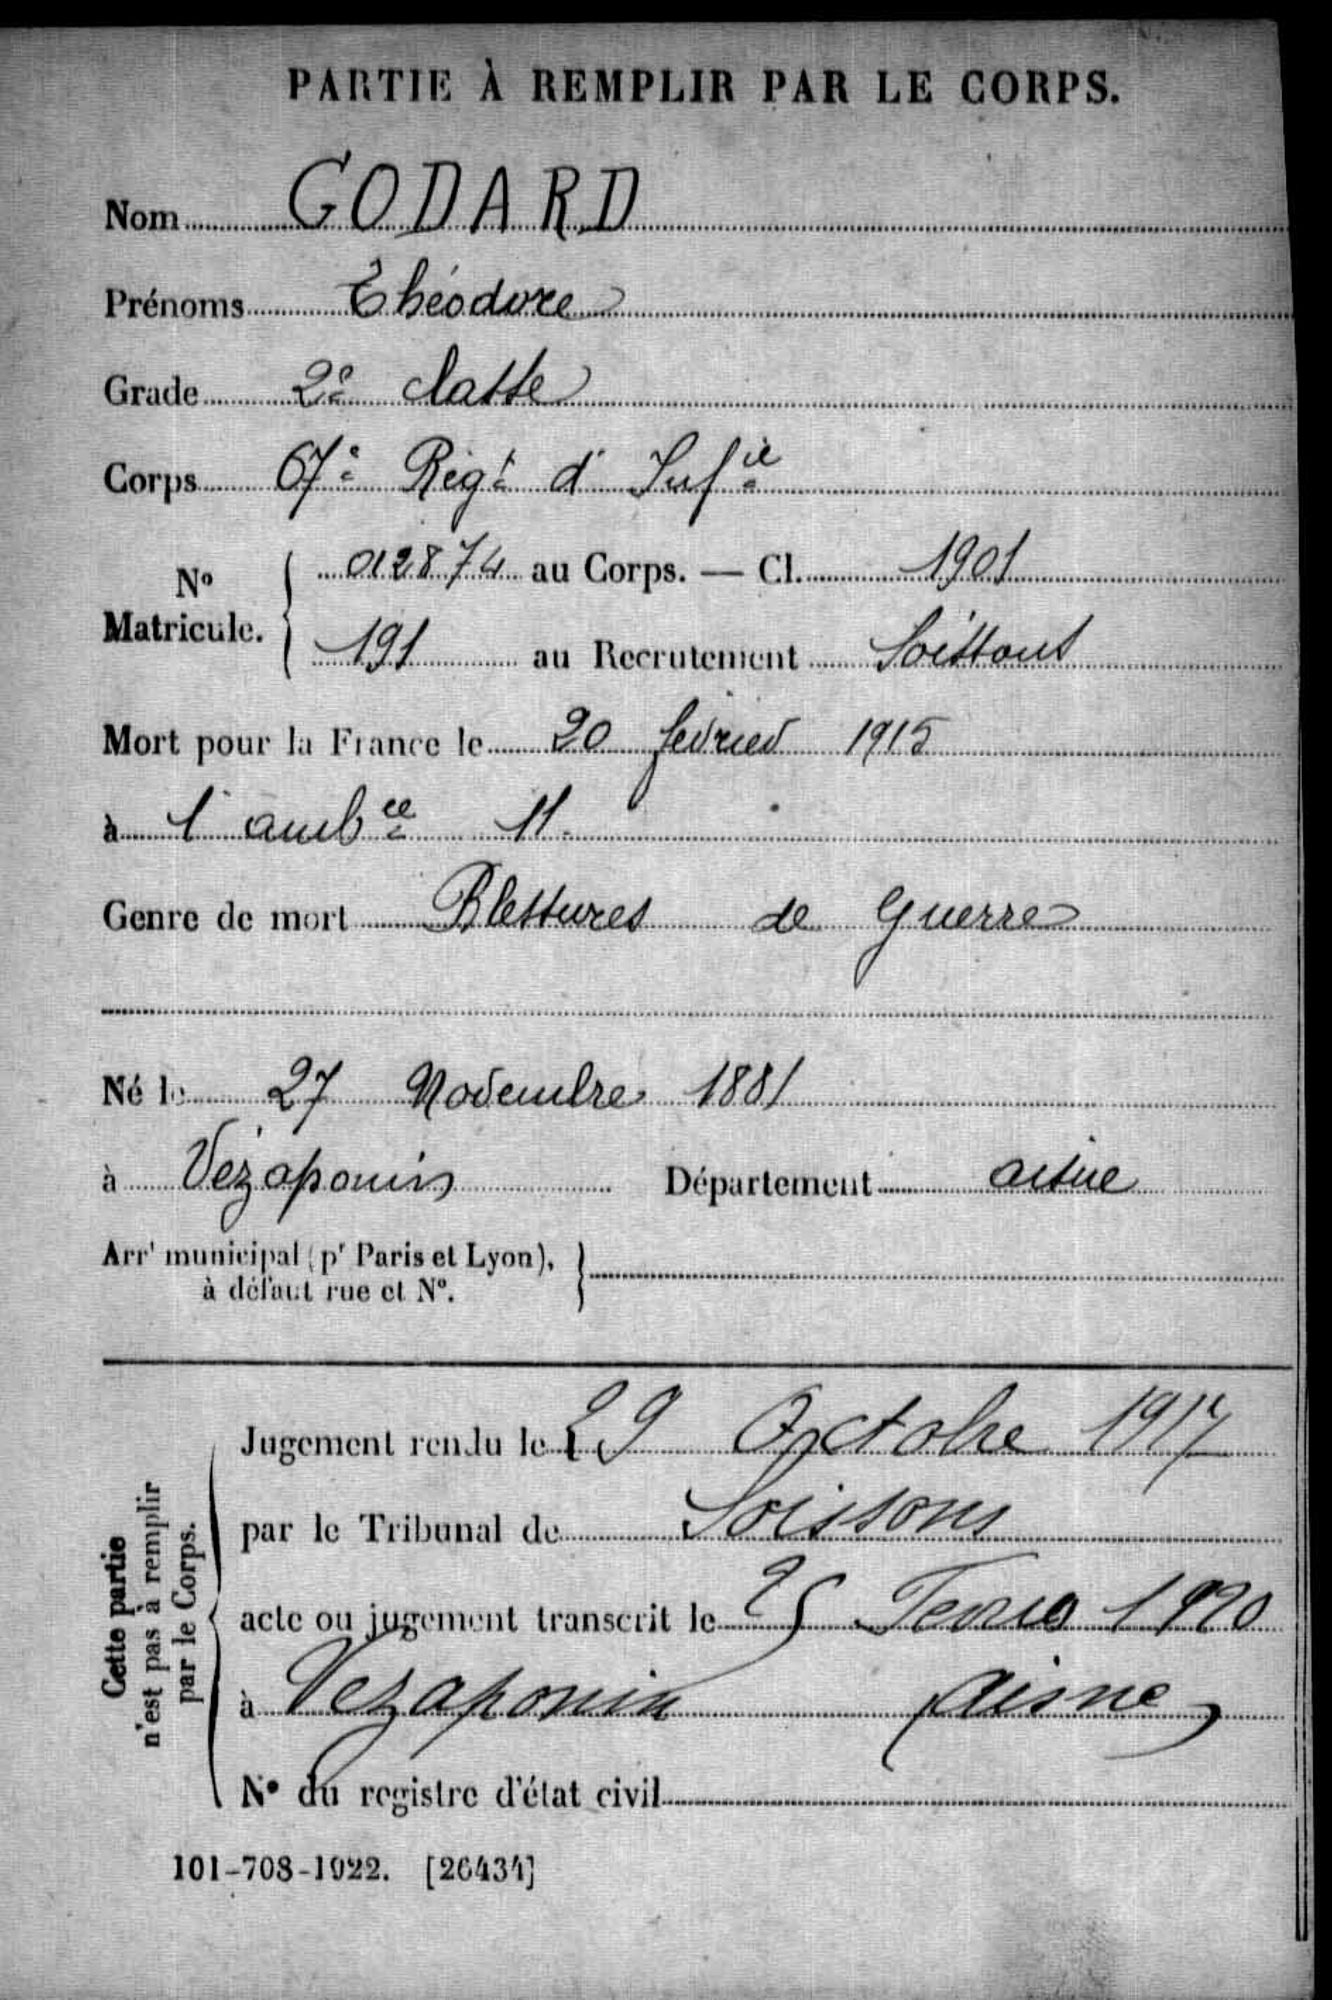 PARTIE À REMPLIR PAR LE CORPS.
Nom GODARD
Prénoms Théodore
Grade 2e classe
Corps 67e Régt d'Infie
No Matricule. 012874 au Corps. — Cl. 1901
191 au Recrutement Soissons
Mort pour la France le 20 février 1915
à l'ambce 11.
Genre de mort Blessures de Guerre
Né le 27 Novembre 1881
à Vézaponin Département aisne
Arrt municipal (pr Paris et Lyon),
à défaut rue et No.
Cette partie
n'est pas à remplir
par le Corps.
Jugement rendu le 29 Octobre 1917
par le Tribunal de Soissons
acte ou jugement transcrit le 25 1920
à Vezaponin Aisne
No du registre d'état civil
101-708-1922. [26434]